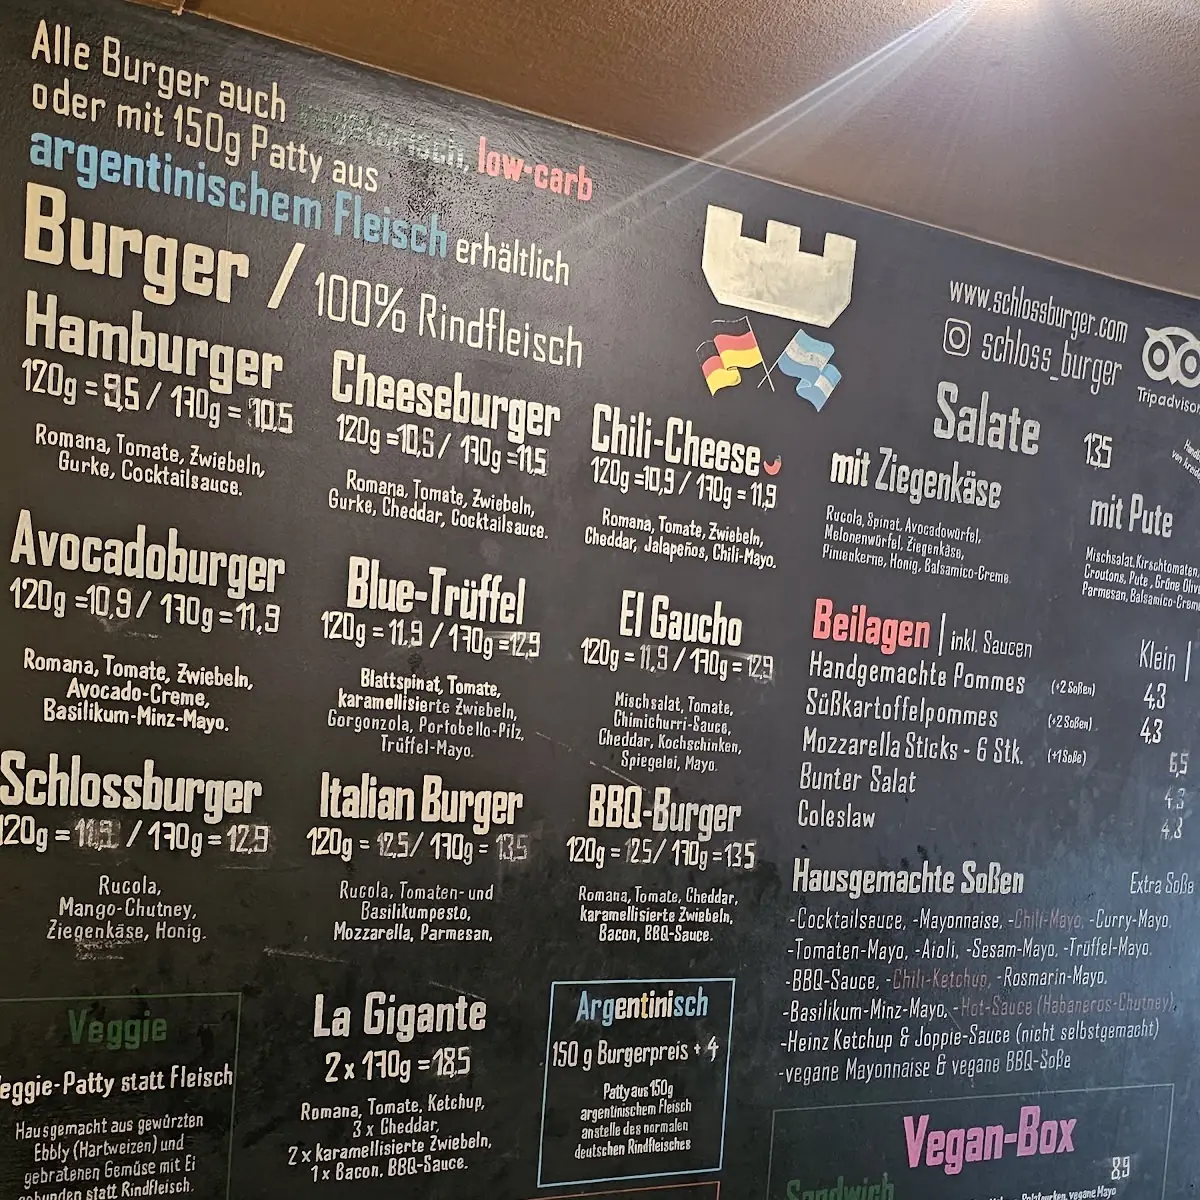 Alle Burger auch vegetarisch, low-carb
oder mit 150g Patty aus
argentinischem Fleisch erhältlich
Burger / 100% Rindfleisch
Hamburger
120g = 9,5 / 170g = 10,5
Romana, Tomate, Zwiebeln,
Gurke, Cocktailsauce.
Cheeseburger
120g =10,5 / 170g =11,5
Romana, Tomate, Zwiebeln,
Gurke, Cheddar, Cocktailsauce.
Chili-Cheese
120g =10,9 / 170g = 11,9
Romana, Tomate, Zwiebeln,
Cheddar, Jalapeños, Chili-Mayo.
Avocadoburger
120g =10,9 / 170g = 11,9
Romana, Tomate, Zwiebeln,
Avocado-Creme,
Basilikum-Minz-Mayo.
Blue-Trüffel
120g = 11,9 / 170g =12,9
Blattspinat, Tomate,
karamellisierte Zwiebeln,
Gorgonzola, Portobello-Pilz,
Trüffel-Mayo.
El Gaucho
120g = 11,9 / 170g = 12,9
Mischsalat, Tomate,
Chimichurri-Sauce,
Cheddar, Kochschinken,
Spiegelei, Mayo.
Schlossburger
120g = 11,9 / 170g = 12,9
Rucola,
Mango-Chutney,
Ziegenkäse, Honig.
Italian Burger
120g = 12,5 / 170g = 13,5
Rucola, Tomaten-und
Basilikumpesto,
Mozzarella, Parmesan.
BBQ-Burger
120g = 12,5 / 170g =13,5
Romana, Tomate, Cheddar,
karamellisierte Zwiebeln,
Bacon, BBQ-Sauce.
Veggie
Veggie-Patty statt Fleisch
Hausgemacht aus gewürzten
Ebbly (Hartweizen) und
gebratenen Gemüse mit Ei
statt Rindfleisch.
La Gigante
2 x 170g = 18,5
Romana, Tomate, Ketchup,
3 x Cheddar,
2 x karamellisierte Zwiebeln,
1 x Bacon, BBQ-Sauce.
Argentinisch
150 g Burgerpreis + 4
Patty aus 150g
argentinischem Fleisch
anstelle des normalen
deutschen Rindfleisches
www.schlossburger.com
schloss_burger
Tripadvisor
Salate 13,5
mit Ziegenkäse
Rucola, Spinat, Avocadowürfel,
Melonenwürfel, Ziegenkäse,
Pinienkerne, Honig, Balsamico-Creme.
mit Pute
Mischsalat, Kirschtomaten,
Croutons, Pute, Grüne
Parmesan, Balsamico-
Beilagen | inkl. Saucen Klein |
Handgemachte Pommes (+2 Soßen) 4,3
Süßkartoffelpommes (+2 Soßen) 4,3
Mozzarella Sticks - 6 Stk. (+1 Soße) 6,5
Bunter Salat 4,3
Coleslaw 4,3
Hausgemachte Soßen Extra Soße
-Cocktailsauce, -Mayonnaise, -Chili-Mayo, -Curry-Mayo,
-Tomaten-Mayo, -Aioli, -Sesam-Mayo, -Trüffel-Mayo.
-BBQ-Sauce, -Chili-Ketchup, -Rosmarin-Mayo,
-Basilikum-Minz-Mayo, -Hot-Sauce (Habaneros-Chutney),
-Heinz Ketchup & Joppie-Sauce (nicht selbstgemacht)
-vegane Mayonnaise & vegane BBQ-Soße
Vegan-Box
8,9
Sandwich
vegane Mayo